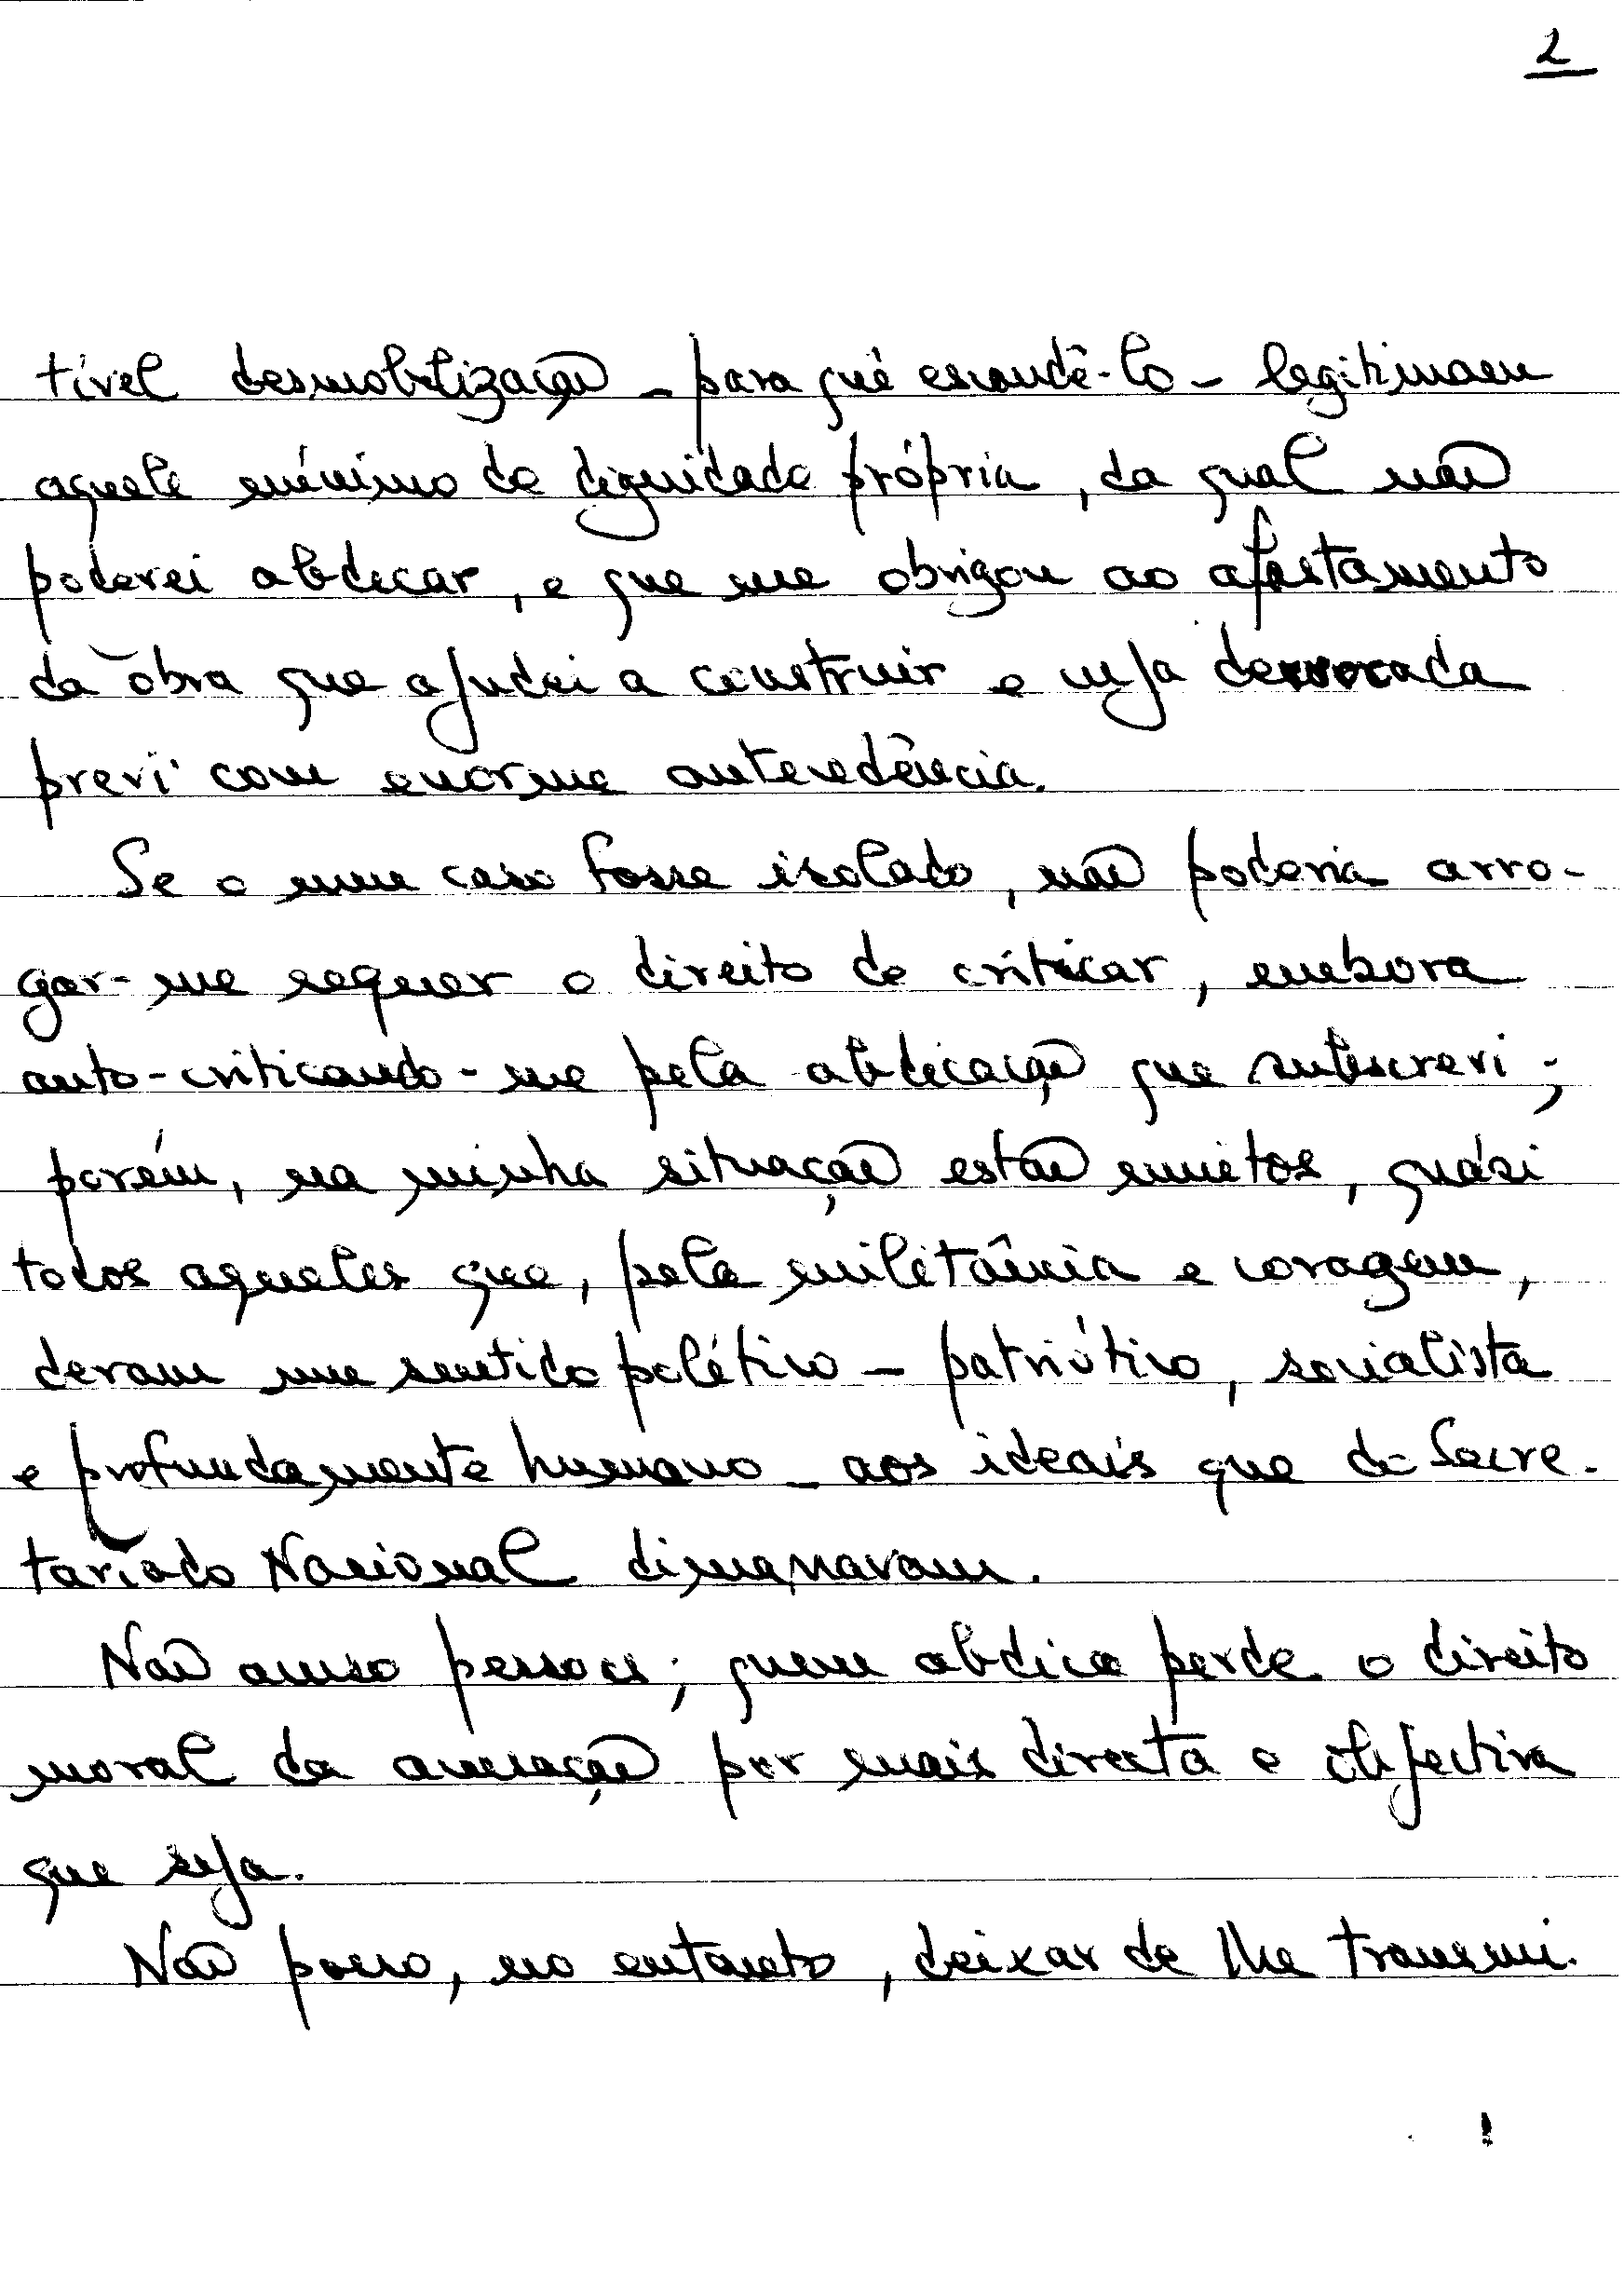 2
tível desmobilização - para quê escondê-lo - legitimam
aquele mínimo de dignidade própria, da qual não
poderei abdicar, e que me obrigou ao afastamento
da obra que ajudei a construir e cuja derrocada
previ com enorme antecedência.
Se o meu caso fosse isolado, não poderia arro-
gar-me sequer o direito de criticar, embora
auto-criticando-me pela abdicação que subscrevi;
porém, na minha situação estão muitos, quási
todos aqueles que, pela militância e coragem,
deram um sentido político - patriótico, socialista
e profundamente humano - aos ideais que do Secre-
tariado Nacional dimanavam.
Não acuso pessoas; quem abdica perde o direito
moral da acusação por mais directa e objectiva
que seja.
Não posso, no entanto, deixar de lhe transmi-